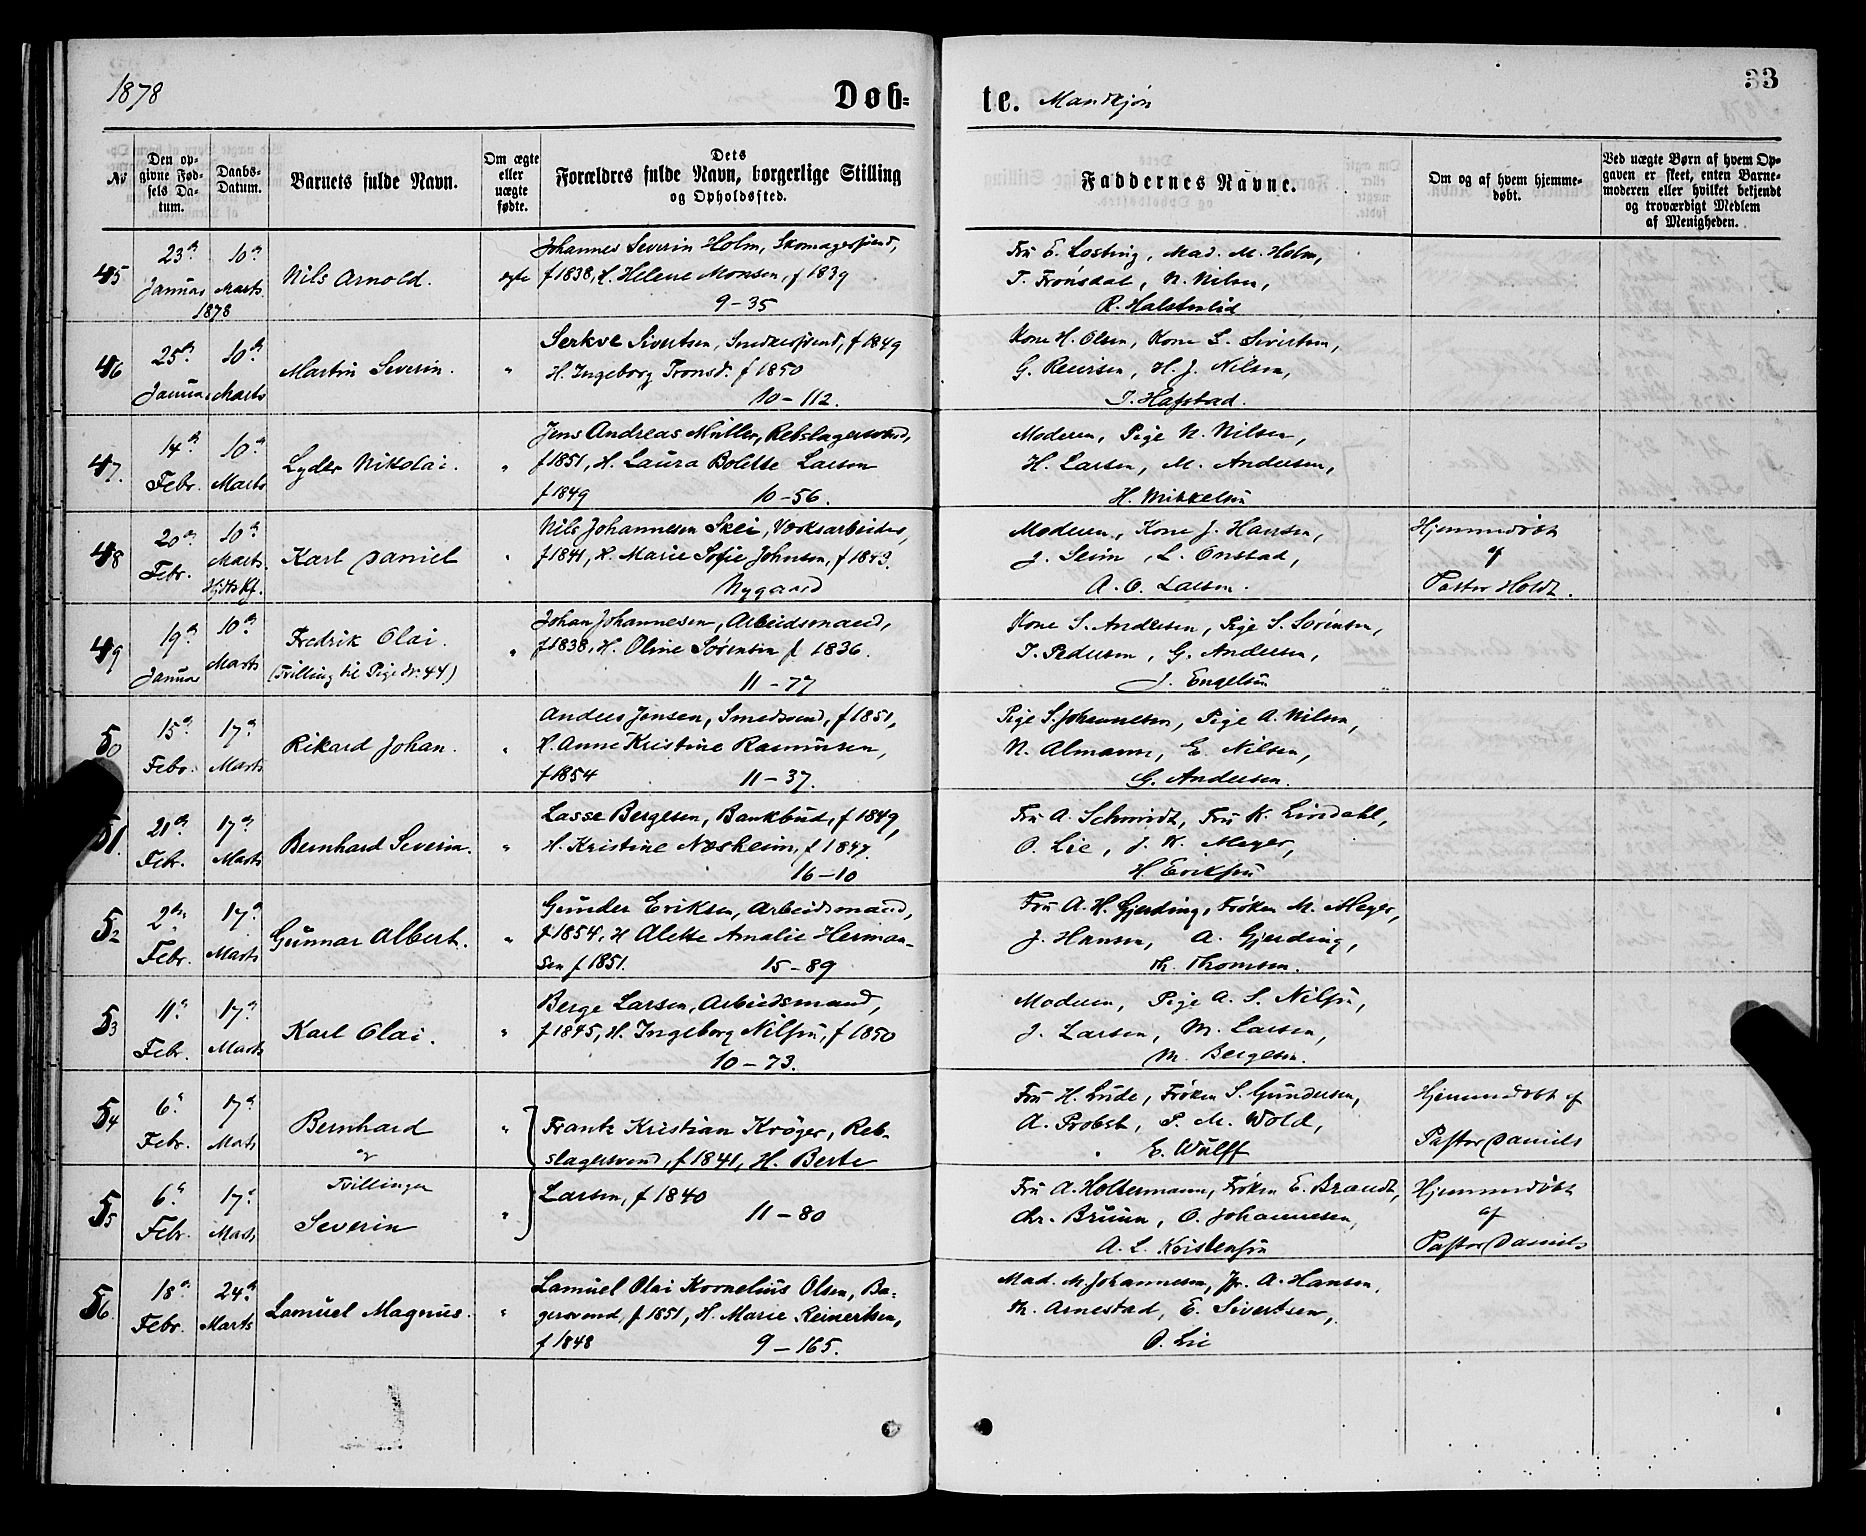 1878
Døb-
te. Mandkjøn
33
No
Den op-
givne Fød-
sels Da-
tum.
Daabs-
Datum.
Barnets fulde Navn.
Om ægte
eller
uægte
fødte.
Dets
Forældres fulde Navn, borgerlige Stilling
og Opholdssted.
Faddernes Navne.
Om og af hvem hjemme-
døbt.
Ved uægte Børn af hvem Op-
gaven er skeet, enten Barne-
moderen eller hvilket bekjendt
og troværdigt Medlem
af Menigheden.
45
23de
Januar
10de
Marts
1878
Nils Arnold.
ægte
Johannes Severin Holm, Skomagersvend,
f 1838, H. Helene Monsen, f 1839
9-35
Fru E. Losting, Mad. M. Holm,
T. Frønsdal, N. Nilsen,
R. Halstenlid
46
25de
Januar
10de
Marts
Martin Severin.
"
Serkve Sivertsen, Snedkersvend, f 1849
H. Ingeborg Tronsd. f 1850
10-112.
Kone H. Olsen, Kone L. Sivertsen,
G. Reiersen, H. J. Nilsen,
J. Hafstad.
47.
14de
Febr.
10de
Marts
Lyder Nikolai.
"
Jens Andreas Müller, Rebslagersvend,
f 1851, H. Laura Bolette Larsen
f 1849
10-56.
Moderen, Pige N. Nilsen,
H. Larsen, M. Andersen,
H. Mikkelsen
48
20de
Febr.
10de
Marts.
Karl Daniel
"
Nils Johannesen Skei, Værksarbeider,
f 1841, H. Marie Sofie Johnsen, f 1843.
Nygaard
Moderen, Kone J. Hansen,
J. Seim, L. Onstad,
A. O. Larsen.
Hjemmedøbt
af
Pastor Holdt.
49
19de
Januar
10de
Marts
Fredrik Olai.
(Tvilling til Pige Nr. 44)
"
Johan Johannesen, Arbeidsmand,
f 1838, H. Oline Sørensen f 1836.
11-77
Kone S. Andersen, Pige S. Sørensen,
T. Pedersen, G. Andersen,
J. Engelsen
50
15de
Febr.
17de
Marts
Rikard Johan.
"
Anders Jensen, Smedsvend, f 1851,
H. Anne Kristine Rasmussen,
f 1854
11-37.
Pige S. Johannesen, Pige A. Nilsen,
N. Almann, E. Nilsen,
G. Andersen.
51.
21de
Febr.
17de
Marts
Bernhard Severin.
"
Lasse Bergesen, Bankbud, f 1849,
H. Kristine Næsheim, f 1847.
16-10
Fru A. Schmidt, Fru K. Lindahl,
O. Lie, J. K. Meyer,
H. Eriksen
52
2den
Febr.
17de
Marts
Gunnar Albert.
"
Gunder Eriksen, Arbeidsmand,
f 1854, H Alette Amalie Herman-
sen f 1851.
15-89
Fru A. H. Gjerding, Frøken M. Meyer,
J. Hansen, A. Gjerding,
Th. Thomsen.
53
11te
Febr.
17de
Marts
Karl Olai.
"
Berge Larsen, Arbeidsmand,
f 1845, H. Ingeborg Nilsen, f 1850
10-73.
Moderen, Pige A. S. Nilsen,
J. Larsen, M. Larsen,
M. Bergesen.
54
6te
Febr.
17de
Marts
Bernhard
og
"
Frantz Kristian Krøger, Reb-
slagersvend, f 1841, H. Berte
Fru H. Lude, Frøken S. Gundersen,
A. Probst, P. M. Wold,
E. Wulff
Hjemmedøbt af
Pastor Daniels
55
6te
Febr.
17de
Marts
Tvillinger
Severin
"
Larsen, f 1840
11-80
Fru A. Holtermann, Frøken E. Brandt,
Chr. Bruun, O. Johannesen,
A. L. Kristensen
Hjemmedøbt
af
Pastor Daniels
56.
18de
Febr.
24de
Marts
Samuel Magnus.
"
Samuel Olai Kornelius Olsen, Ba-
gersvend, f 1851, H. Marie Reinertsen,
f 1848
9-165.
Mad. M. Johannesen, Jfr. A. Hansen,
Th. Arnestad, E. Sivertsen,
O. Lie